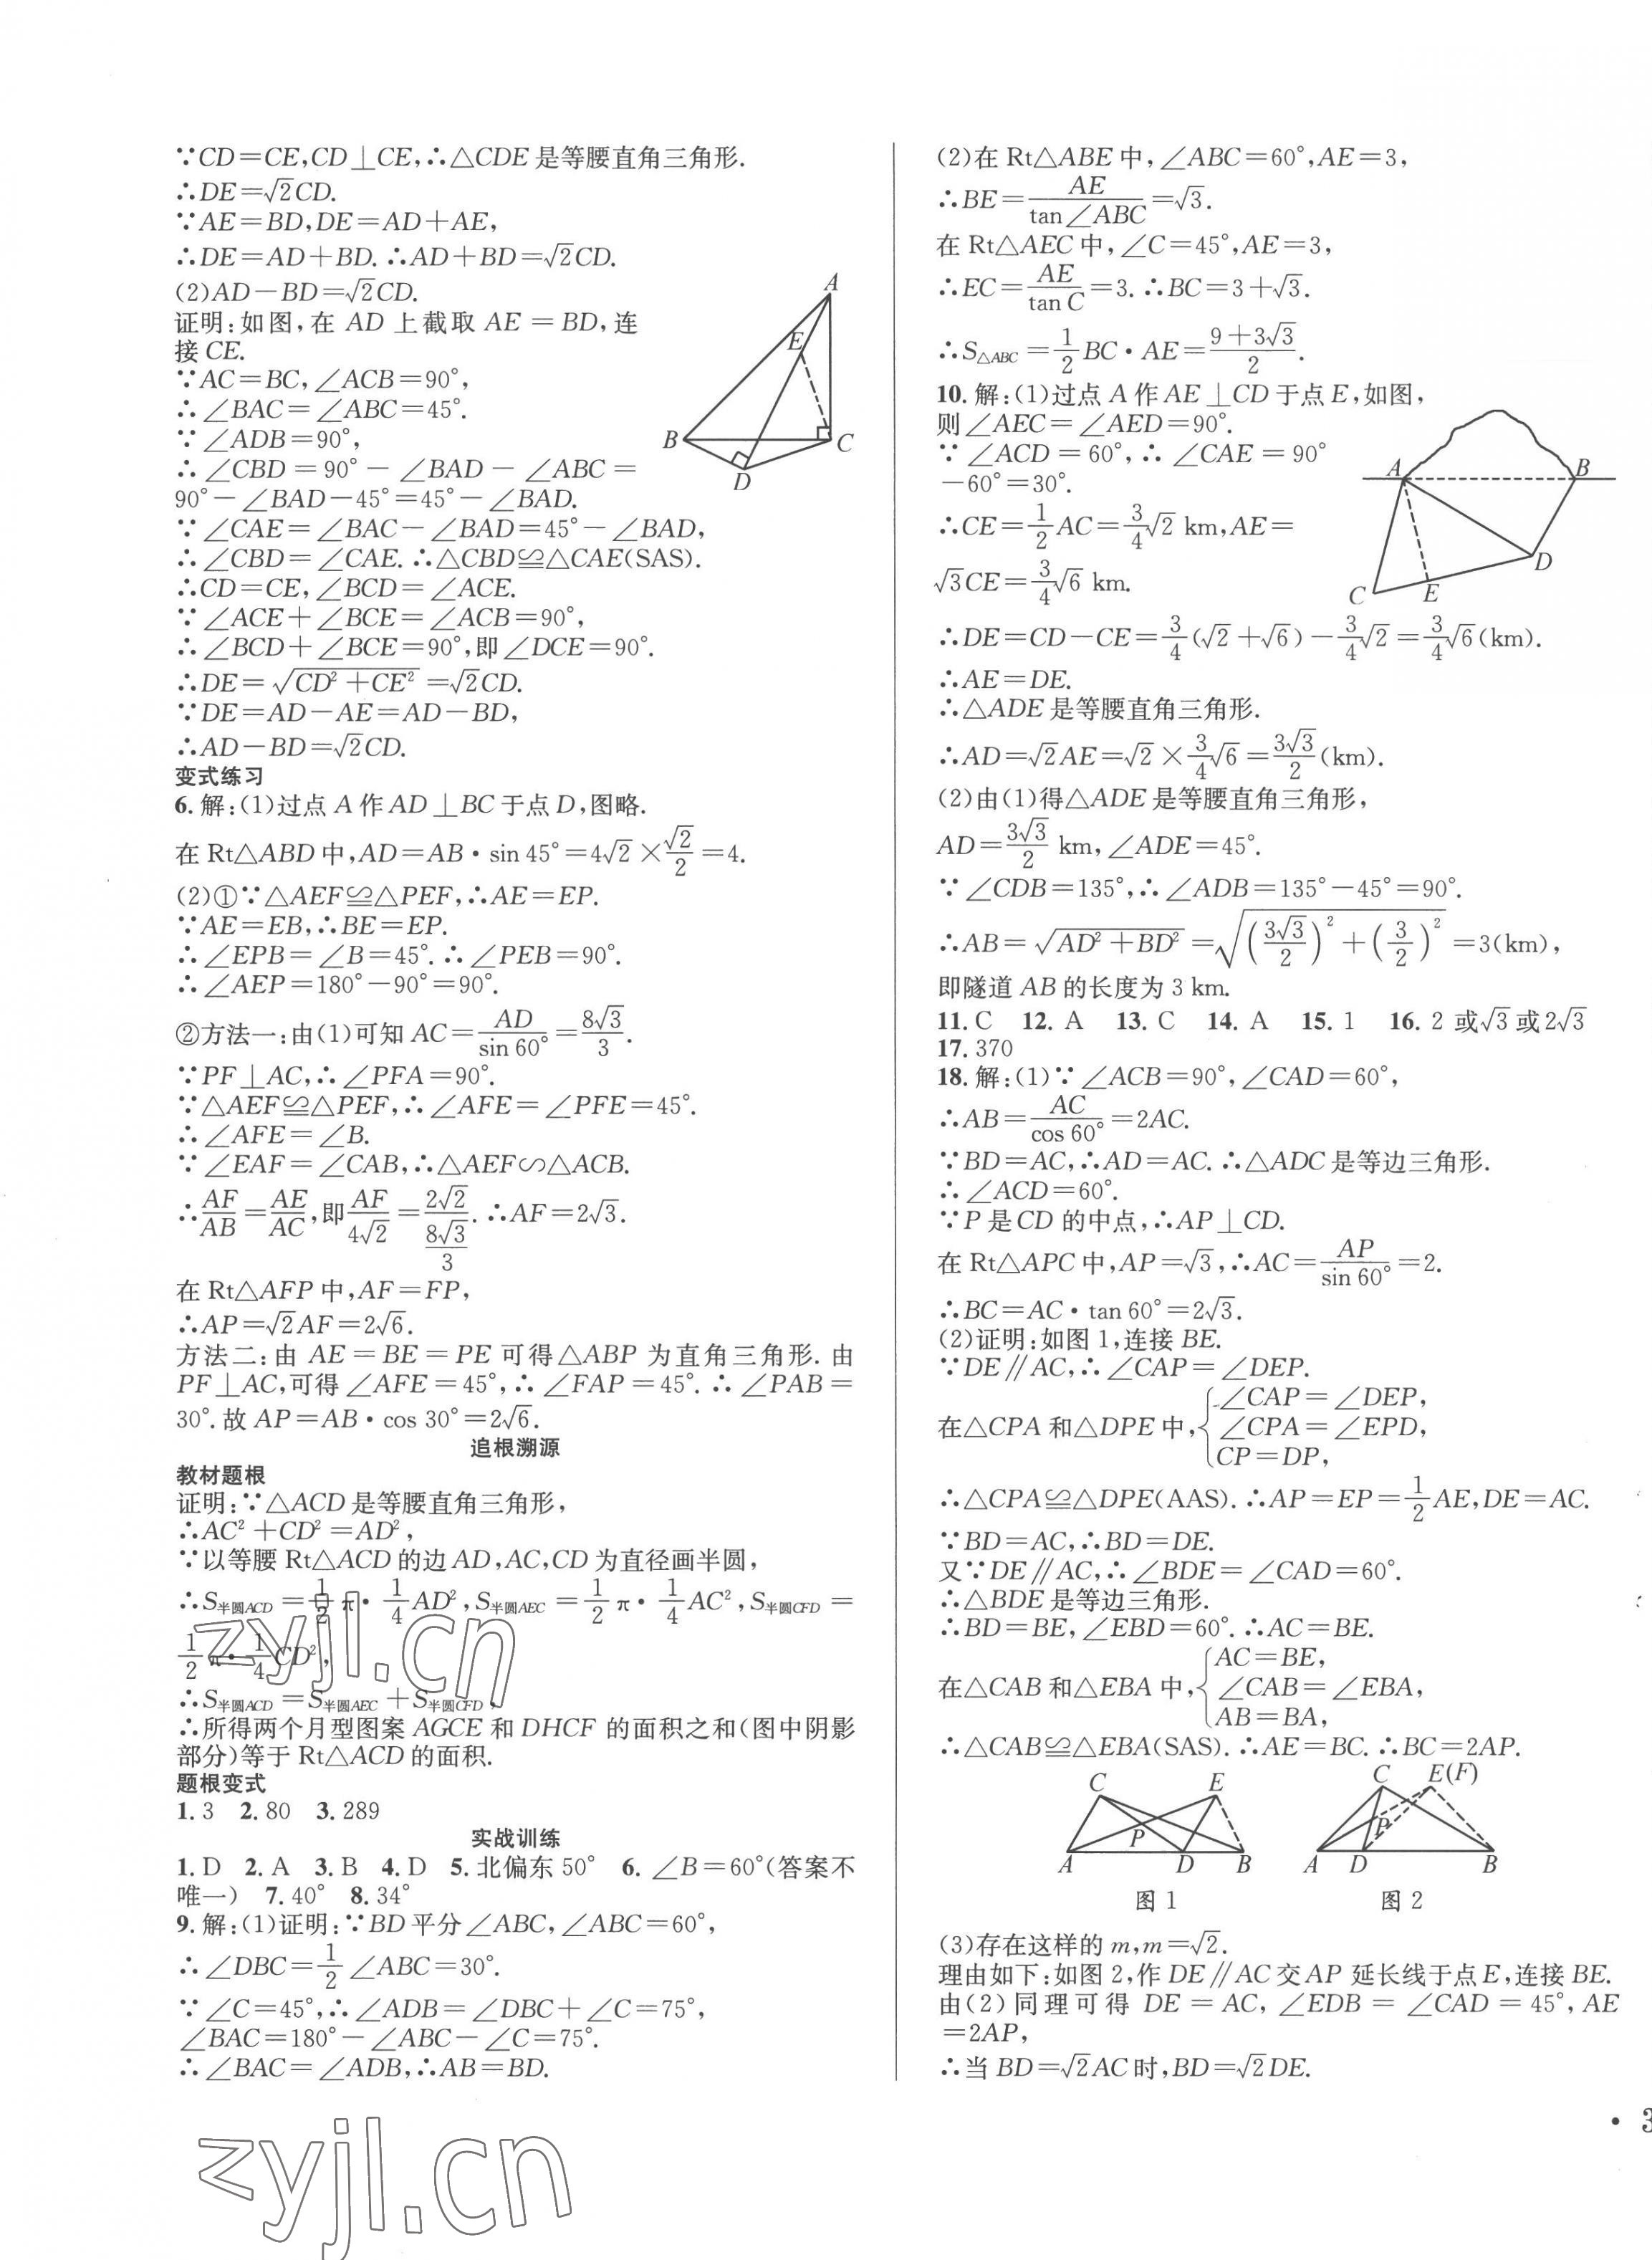 ∵CD=CE,CD⊥CE,∴△CDE是等腰直角三角形.
∴DE=√2CD.
∵AE=BD,DE=AD+AE,
∴DE=AD+BD.∴AD+BD=√2CD.
(2)AD-BD=√2CD.
证明:如图,在 AD 上截取 AE=BD,连
接CE.
∵AC=BC,∠ACB=90°,
∴∠BAC=∠ABC=45°.
∵∠ADB=90°,
∴∠CBD=90°-∠BAD-∠ABC=
90°-∠BAD-45°=45°-∠BAD.
∵∠CAE=∠BAC-∠BAD=45°-∠BAD,
∴∠CBD=∠CAE.∴△CBD≌△CAE(SAS).
∴CD=CE,∠BCD=∠ACE.
∵∠ACE+∠BCE=∠ACB=90°,
∴∠BCD+∠BCE=90°,即∠DCE=90°.
∴DE=√(CD²+CE²)=√2CD.
∵DE=AD-AE=AD-BD,
∴AD-BD=√2CD.
A
E
B
C
D
变式练习
6.解:(1)过点A作AD⊥BC于点D,图略.
在Rt△ABD中,AD=AB·sin 45°=4√2×√2/2=4.
(2)①∵△AEF≌△PEF,∴AE=EP.
∵AE=EB,∴BE=EP.
∴∠EPB=∠B=45°.∴∠PEB=90°.
∴∠AEP=180°-90°=90°.
②方法一:由(1)可知AC=AD/sin 60°=8√3/3.
∵PF⊥AC,∴∠PFA=90°.
∵△AEF≌△PEF,∴∠AFE=∠PFE=45°.
∴∠AFE=∠B.
∵∠EAF=∠CAB,∴△AEF∽△ACB.
∴AF/AB=AE/AC,即AF/4√2=2√2/(8√3/3).∴AF=2√3.
在Rt△AFP中,AF=FP,
∴AP=√2AF=2√6.
方法二:由 AE=BE=PE 可得△ABP 为直角三角形.由
PF⊥AC,可得∠AFE=45°,∴∠FAP=45°.∴∠PAB=
30°.故AP=AB·cos 30°=2√6.
追根溯源
教材题根
证明:∵△ACD是等腰直角三角形,
∴AC²+CD²=AD²,
∵以等腰Rt△ACD的边AD,AC,CD为直径画半圆,
∴S半圆ACD=1/2π·1/4AD²,S半圆AEC=1/2π·1/4AC²,S半圆CFD=
1/2π·1/4CD²,
∴S半圆ACD=S半圆AEC+S半圆CFD,
∴所得两个月型图案AGCE和DHCF的面积之和(图中阴影
部分)等于Rt△ACD的面积.
题根变式
1.3 2.80 3.289
实战训练
1.D 2.A 3.B 4.D 5.北偏东50° 6.∠B=60°(答案不
唯一) 7.40° 8.34°
9.解:(1)证明:∵BD平分∠ABC,∠ABC=60°,
∴∠DBC=1/2∠ABC=30°.
∵∠C=45°,∴∠ADB=∠DBC+∠C=75°,
∠BAC=180°-∠ABC-∠C=75°.
∴∠BAC=∠ADB,∴AB=BD.
(2)在Rt△ABE中,∠ABC=60°,AE=3,
∴BE=AE/tan∠ABC=√3.
在Rt△AEC中,∠C=45°,AE=3,
∴EC=AE/tan C=3.∴BC=3+√3.
∴S△ABC=1/2BC·AE=(9+3√3)/2.
10.解:(1)过点A作AE⊥CD于点E,如图,
则∠AEC=∠AED=90°.
∵∠ACD=60°,∴∠CAE=90°
-60°=30°.
∴CE=1/2AC=3/4√2 km,AE=
√3CE=3/4√6 km.
A
B
C
E
D
∴DE=CD-CE=3/4(√2+√6)-3/4√2=3/4√6(km).
∴AE=DE.
∴△ADE是等腰直角三角形.
∴AD=√2AE=√2×3/4√6=3√3/2(km).
(2)由(1)得△ADE是等腰直角三角形,
AD=3√3/2 km,∠ADE=45°.
∵∠CDB=135°,∴∠ADB=135°-45°=90°.
∴AB=√(AD²+BD²)=√((3√3/2)²+(3/2)²)=3(km),
即隧道AB的长度为3 km.
11.C 12.A 13.C 14.A 15.1 16.2或√3或2√3
17.370
18.解:(1)∵∠ACB=90°,∠CAD=60°,
∴AB=AC/cos 60°=2AC.
∵BD=AC,∴AD=AC.∴△ADC是等边三角形.
∴∠ACD=60°.
∵P是CD的中点,∴AP⊥CD.
在Rt△APC中,AP=√3,∴AC=AP/sin 60°=2.
∴BC=AC·tan 60°=2√3.
(2)证明:如图1,连接BE.
∵DE∥AC,∴∠CAP=∠DEP.
在△CPA和△DPE中,{∠CAP=∠DEP,
∠CPA=∠EPD,
CP=DP,
∴△CPA≌△DPE(AAS).∴AP=EP=1/2AE,DE=AC.
∵BD=AC,∴BD=DE.
又∵DE∥AC,∴∠BDE=∠CAD=60°.
∴△BDE是等边三角形.
∴BD=BE,∠EBD=60°.∴AC=BE.
在△CAB和△EBA中,{AC=BE,
∠CAB=∠EBA,
AB=BA,
∴△CAB≌△EBA(SAS).∴AE=BC.∴BC=2AP.
C E P A D B
C E(F) P A D B
图1 图2
(3)存在这样的m,m=√2.
理由如下:如图2,作DE∥AC交AP延长线于点E,连接BE.
由(2)同理可得 DE=AC,∠EDB=∠CAD=45°,AE
=2AP,
∴当BD=√2AC时,BD=√2DE.
· 3
zyjl.cn
zyjl.cn